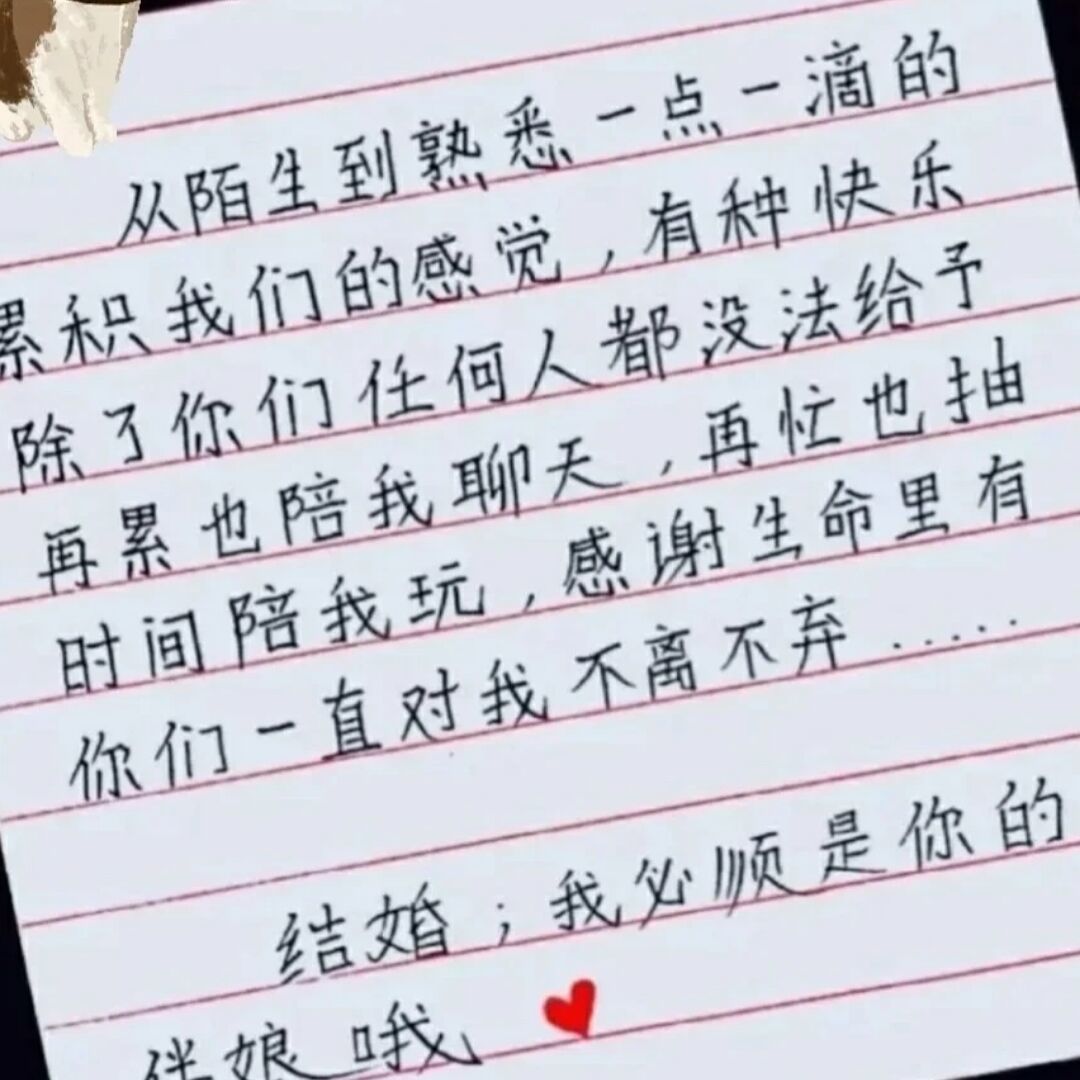 从陌生到熟悉一点一滴的
累积我们的感觉，有种快乐
除了你们任何人都没法给予
再累也陪我聊天，再忙也抽
时间陪我玩，感谢生命里有
你们一直对我不离不弃……
结婚；我必顺是你的
伴娘哦